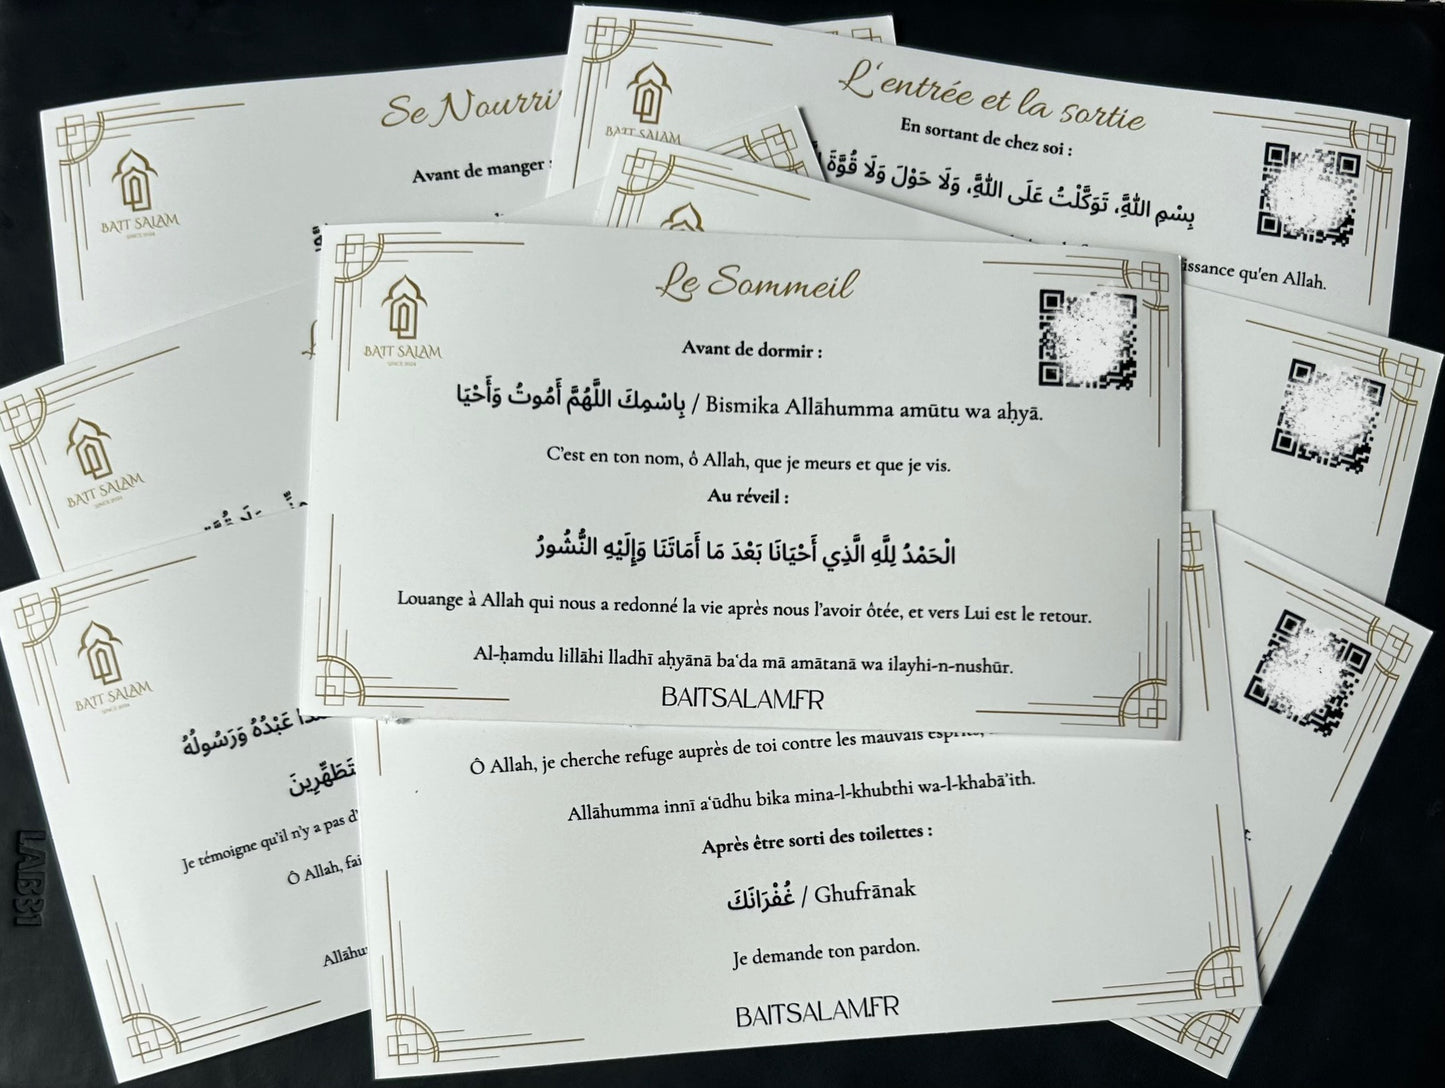 Se Nourri
BAIT SALAM
SINCE 2024
Avant de manger :
L'entrée et la sortie
BAIT SALAM
En sortant de chez soi :
بِسْمِ اللَّهِ، تَوَكَّلْتُ عَلَى اللَّهِ، وَلَا حَوْلَ وَلَا قُوَّةَ
issance qu'en Allah.
Le Sommeil
BAIT SALAM
SINCE 2024
Avant de dormir :
بِاسْمِكَ اللَّهُمَّ أَمُوتُ وَأَحْيَا / Bismika Allāhumma amūtu wa aḥyā.
C'est en ton nom, ô Allah, que je meurs et que je vis.
Au réveil :
الْحَمْدُ لِلَّهِ الَّذِي أَحْيَانَا بَعْدَ مَا أَمَاتَنَا وَإِلَيْهِ النُّشُورُ
Louange à Allah qui nous a redonné la vie après nous l'avoir ôtée, et vers Lui est le retour.
Al-ḥamdu lillāhi lladhī aḥyānā ba'da mā amātanā wa ilayhi-n-nushūr.
BAITSALAM.FR
BAIT SALAM
SINCE 2024
BAIT SALAM
SINCE 2024
عَبْدُهُ وَرَسُولُهُ
Je témoigne qu'il n'y a pas d'
Ô Allah, fai
Allāhu
Ô Allah, je cherche refuge auprès de toi contre les mauvais
Allāhumma innī a'ūdhu bika mina-l-khubthi wa-l-khabā'ith.
Après être sorti des toilettes :
غُفْرَانَكَ / Ghufrānak
Je demande ton pardon.
BAITSALAM.FR
LAB31